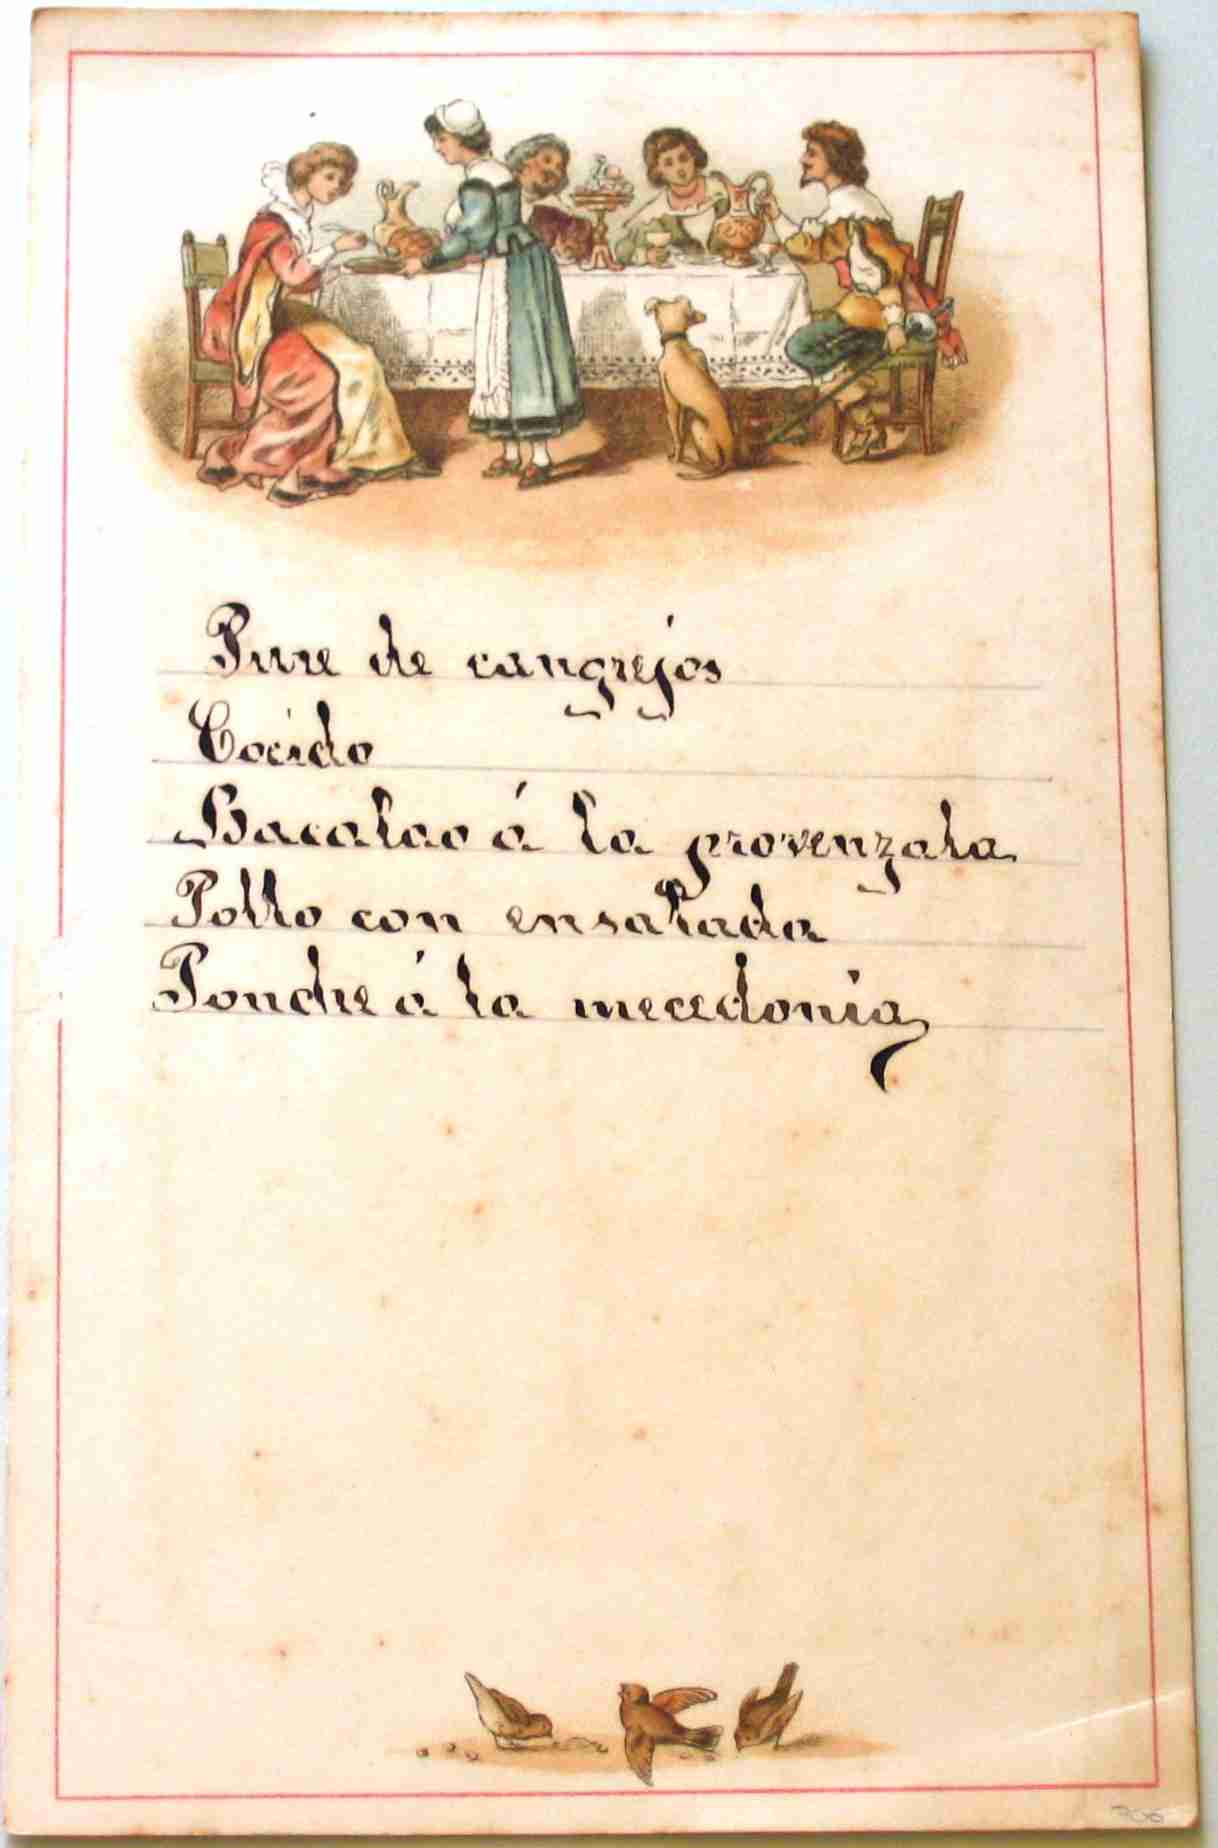 Pure de cangrejos
Cocido
Bacalao á la provenzala
Pollo con ensalada
Ponche á la mecedonia